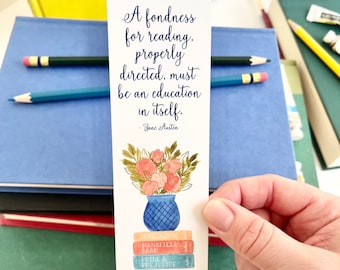 A fondness
for reading,
properly
directed, must
be an education
in itself.
- Jane Austen
MANSFIELD
PARK
PRIDE &
PREJUDICE